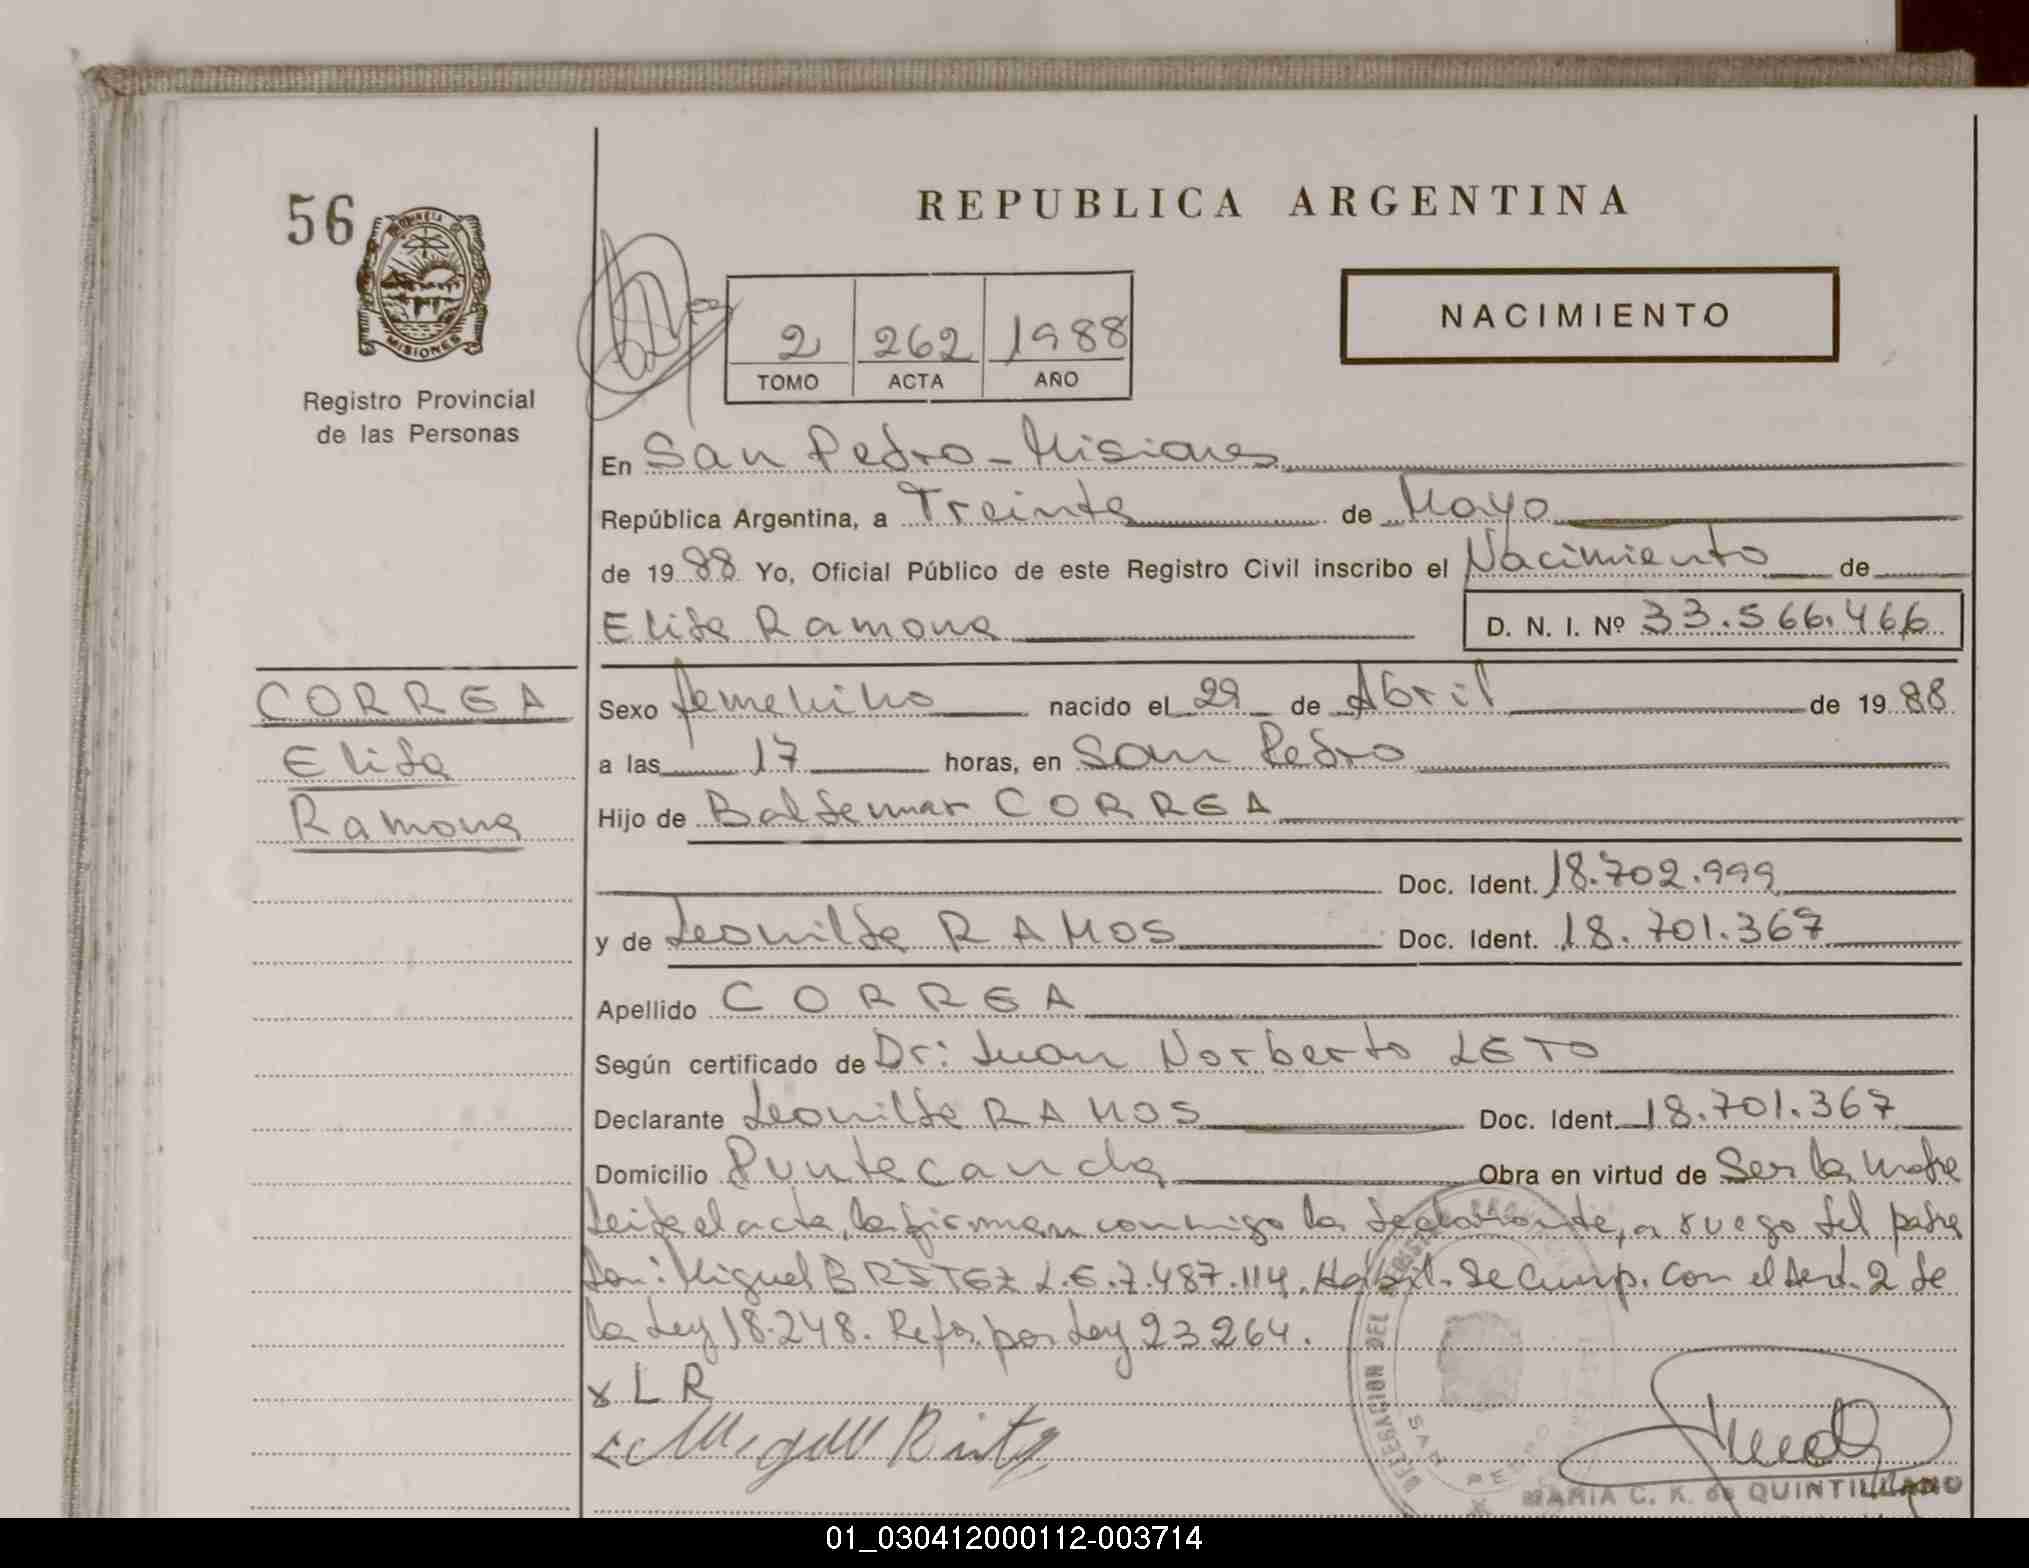 REPUBLICA ARGENTINA
56
PROVINCIA
MISIONES
Registro Provincial
de las Personas
NACIMIENTO
2 262 1988
TOMO ACTA AÑO
En San Pedro - Misiones
República Argentina, a Treinta de Mayo
de 1988 Yo, Oficial Público de este Registro Civil inscribo el Nacimiento de
Elida Ramona D. N. I. Nº 33.566.466
CORREA
Elida
Ramona
Sexo femenino nacido el 29 de Abril de 1988
a las 17 horas, en San Pedro
Hijo de Baldemar CORREA
Doc. Ident. 18.702.999
y de Leonilda RAMOS Doc. Ident. 18.701.367
Apellido CORREA
Según certificado de Dr: Juan Norberto LETO
Declarante Leonilda RAMOS Doc. Ident. 18.701.367
Domicilio Puntecancha Obra en virtud de Ser la madre
Leida el acta, la firman conmigo la declarante, a ruego del padre
Don: Miguel BRITEZ L.E. 7.487.114. Hábil. Se Cump. con el Art. 2 de
la Ley 18.248. Refor. por Ley 23264.
x L R
Miguel Britez
DELEGACION DEL
SAN PEDRO
MARIA C. K. de QUINTILLANO
01_030412000112-003714